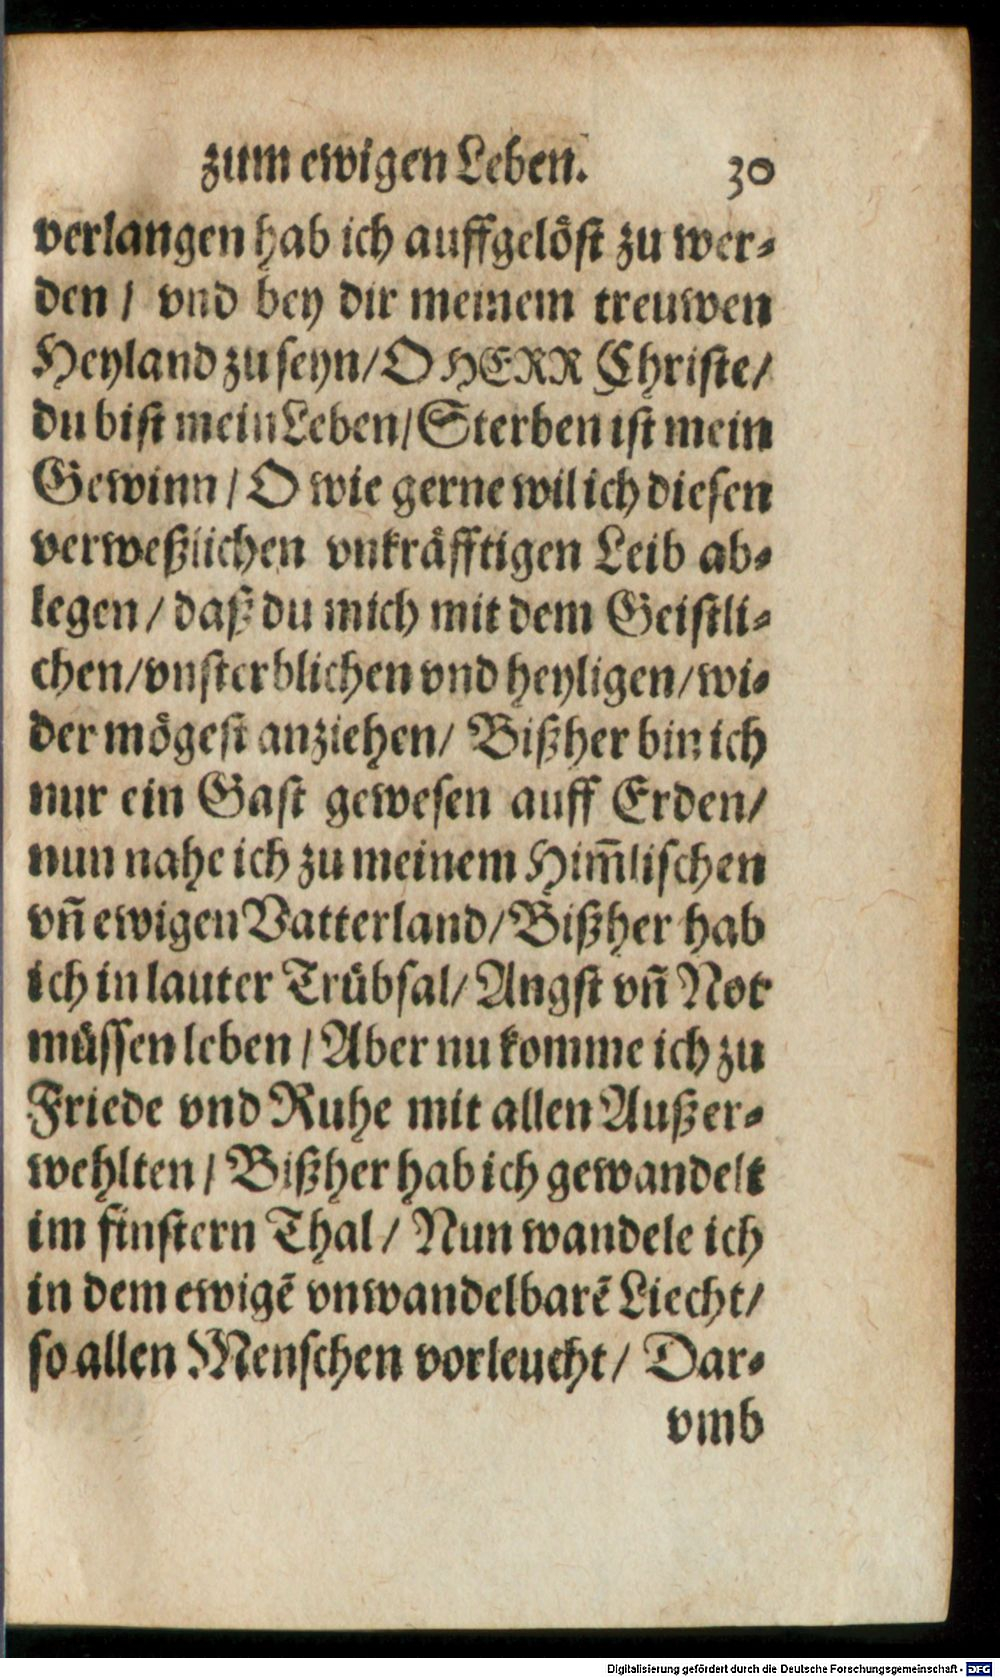 zum ewigen Leben. 30
verlangen hab ich auffgelöst zu wer-
den / vnd bey dir meinem treuwen
Heyland zu seyn/ O HERR Christe/
du bist mein Leben/ Sterben ist mein
Gewinn / O wie gerne wil ich diesen
verweßlichen vnkräfftigen Leib ab-
legen / daß du mich mit dem Geistli-
chen/ vnsterblichen vnd heyligen/ wi-
der mögest anziehen/ Bißher bin ich
nur ein Gast gewesen auff Erden/
nun nahe ich zu meinem Him̃lischen
vñ ewigen Vatterland/ Bißher hab
ich in lauter Trübsal/ Angst vñ Not
müssen leben / Aber nu komme ich zu
Friede vnd Ruhe mit allen Außer-
wehlten / Bißher hab ich gewandelt
im finstern Thal / Nun wandele ich
in dem ewigẽ vnwandelbarẽ Liecht/
so allen Menschen vorleucht/ Dar-
vmb
Digitalisierung gefördert durch die Deutsche Forschungsgemeinschaft - DFG